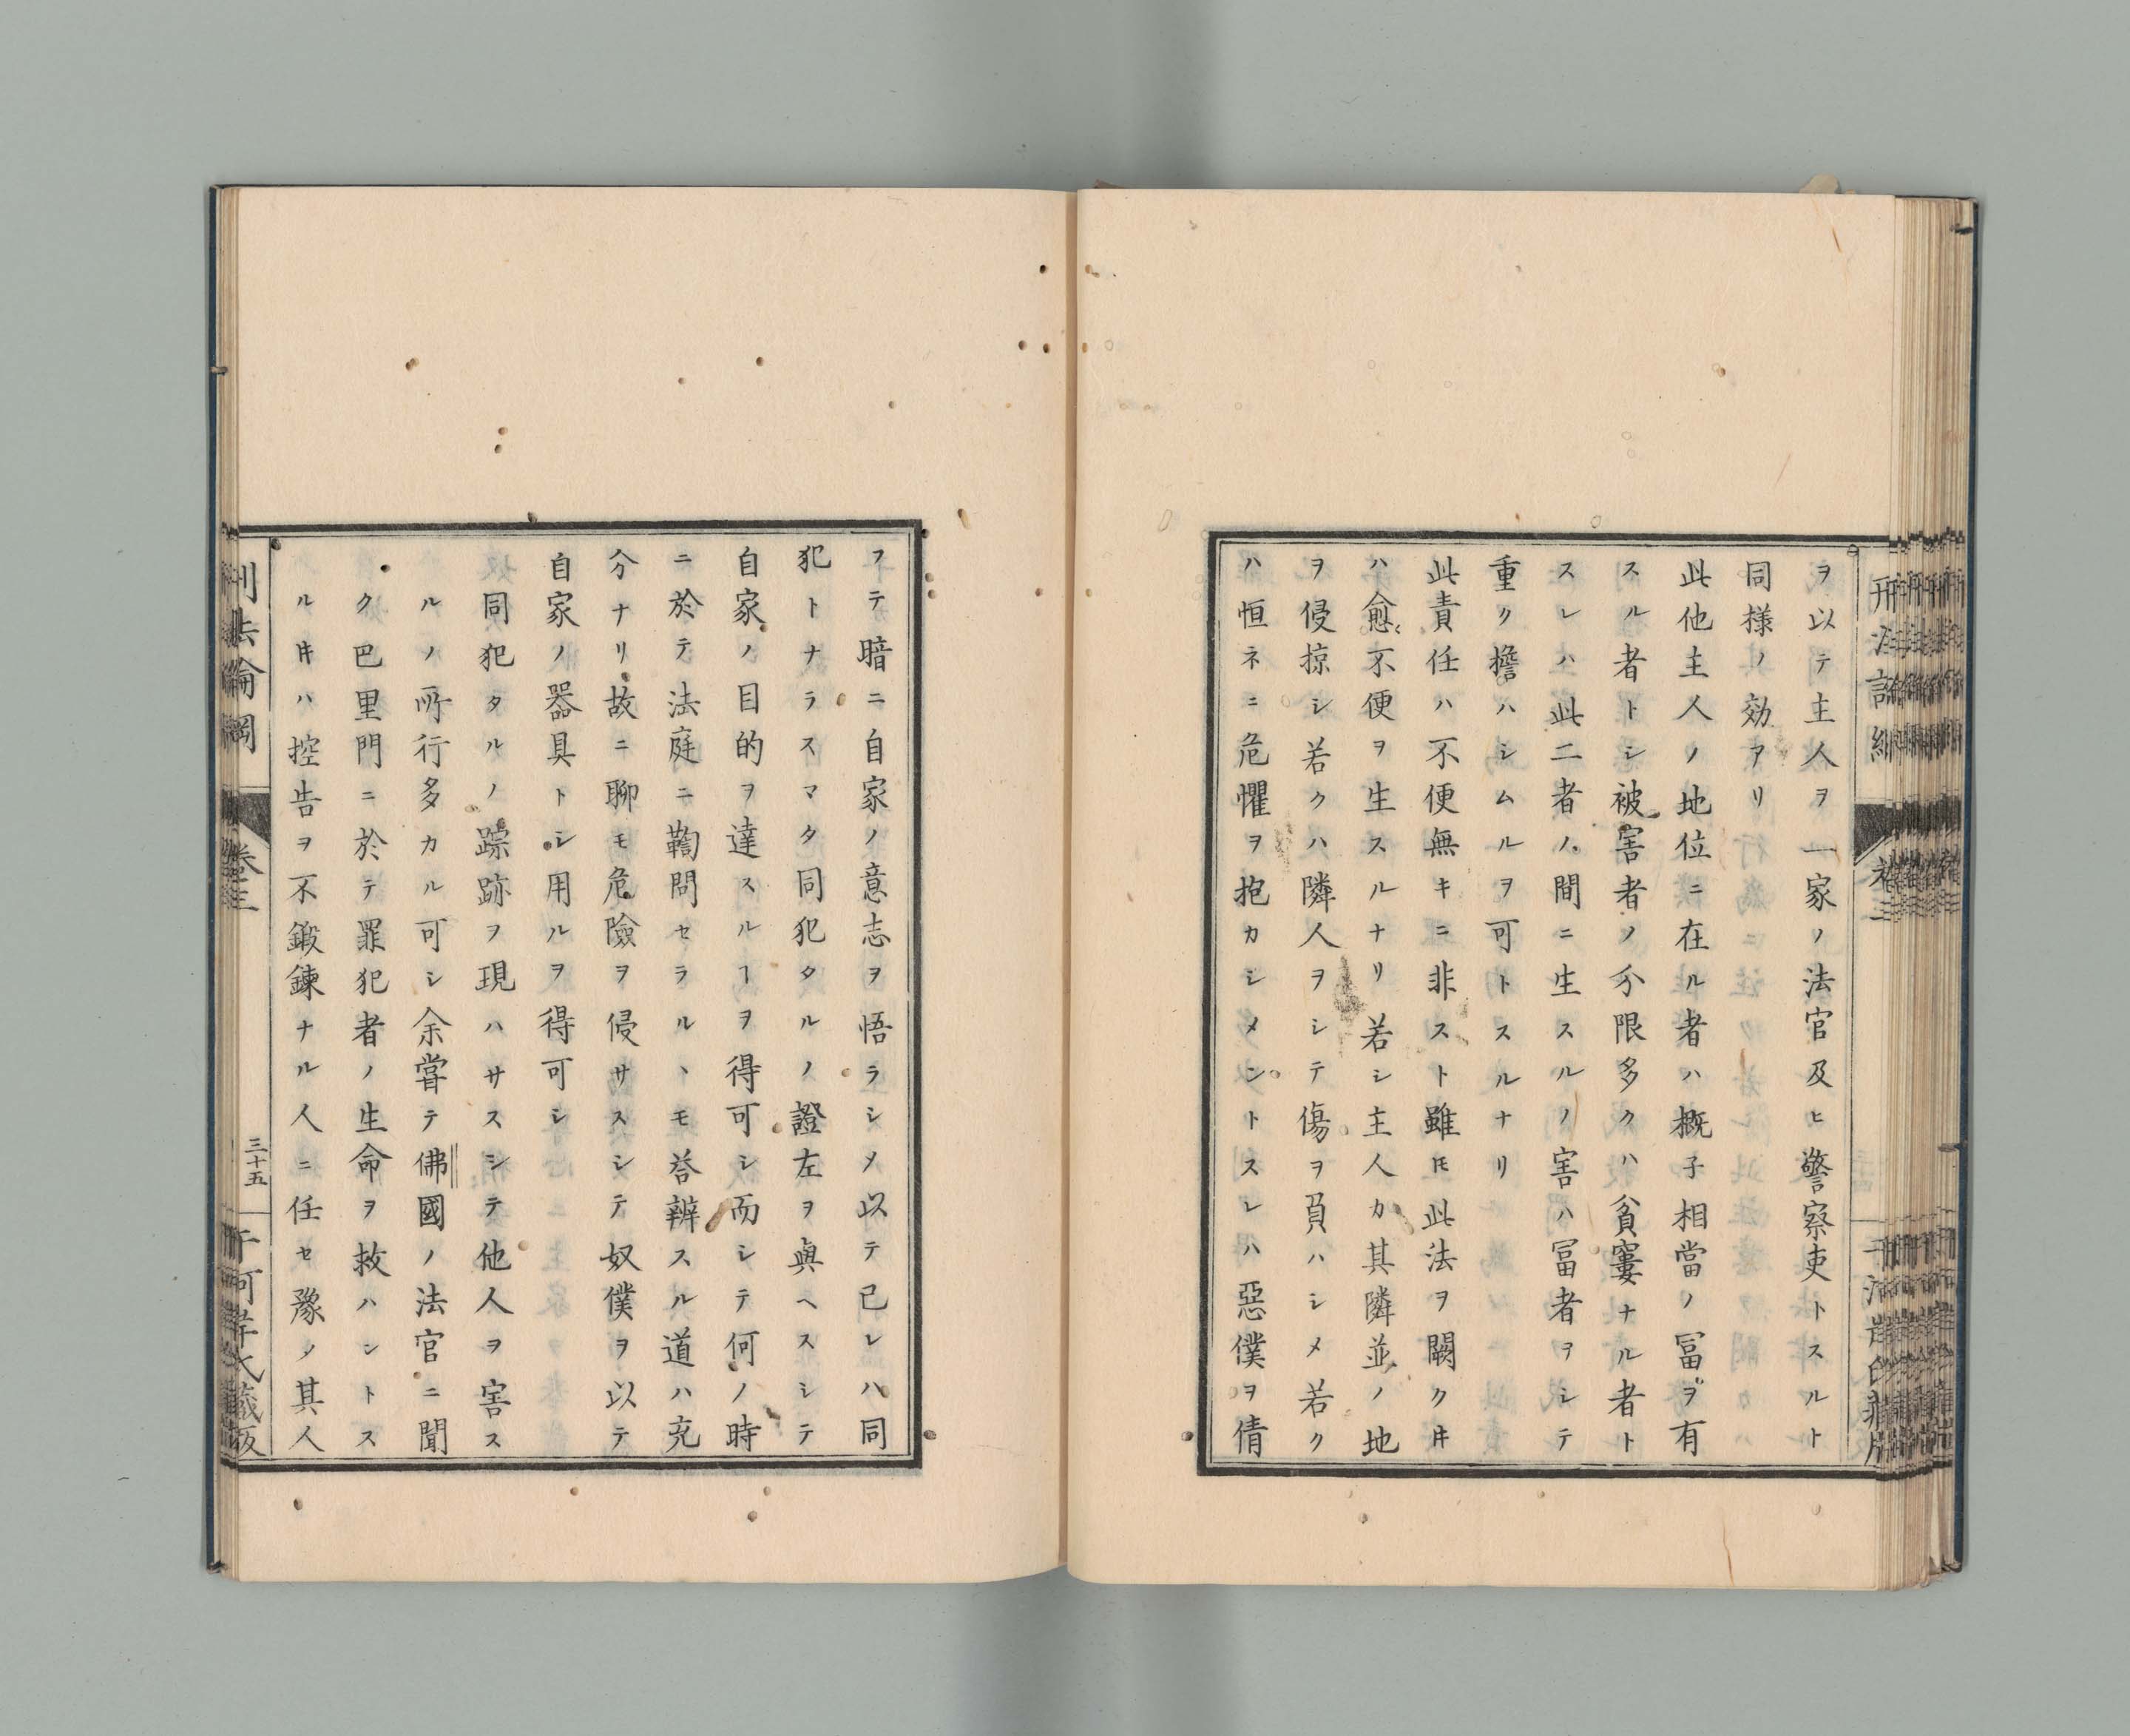 ヲ以テ主人ヲ一家ノ法官及ヒ警察吏トスルト
同様ノ効アリ
此他主人ノ地位ニ在ル者ハ概子相當ノ冨ヲ有
スル者トシ被害者ノ分限多クハ貧窶ナル者ト
スレハ此二者ノ間ニ生スルノ害ハ冨者ヲシテ
重ク擔ハシムルヲ可トスルナリ
此責任ハ不便無キニ非スト雖𪜈此法ヲ闕クキ
ハ愈不便ヲ生スルナリ若シ主人カ其隣並ノ地
ヲ侵掠シ若クハ隣人ヲシテ傷ヲ負ハシメ若ク
ハ恒ネニ危懼ヲ抱カシメントスレハ惡僕ヲ倩
フテ暗ニ自家ノ意志ヲ悟ラシメ以テ己レハ同
犯トナラスマタ同犯タルノ證左ヲ與ヘスシテ
自家ノ目的ヲ達スルヿヲ得可シ而シテ何ノ時
ニ於テ法庭ニ鞫問セラルヽモ荅辨スル道ハ充
分ナリ故ニ聊モ危險ヲ侵サスシテ奴僕ヲ以テ
自家ノ器具トシ用ルヲ得可シ
同犯タルノ踪跡ヲ現ハサスシテ他人ヲ害ス
ルノ所行多カル可シ余甞テ佛國ノ法官ニ聞
ク巴里門ニ於テ罪犯者ノ生命ヲ救ハントス
ルキハ控告ヲ不鍛鍊ナル人ニ任セ豫ノ其人
刑法論綱
卷三
三十五